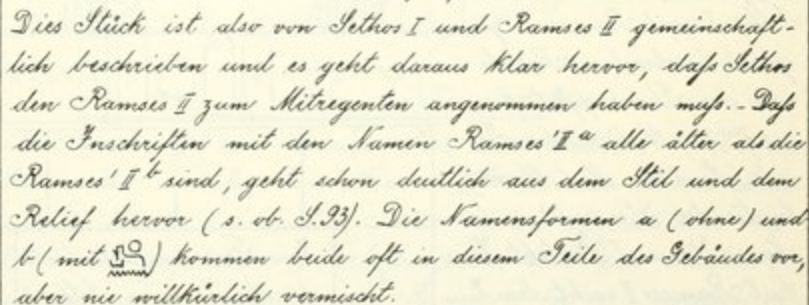 Dies Stück ist also von Sethos I und Ramses II gemeinschaft-
lich beschrieben und es geht daraus klar hervor, daſs Sethos
den Ramses II zum Mitregenten angenommen haben muſs. - Daſs
die Inschriften mit den Namen Ramses' II a alle älter als die
Ramses' II b sind, geht schon deutlich aus dem Stil und dem
Relief hervor (s. ob. S. 93). Die Namensformen a (ohne) und
b (mit ) kommen beide oft in diesem Teile des Gebäudes vor,
aber nie willkürlich vermischt.